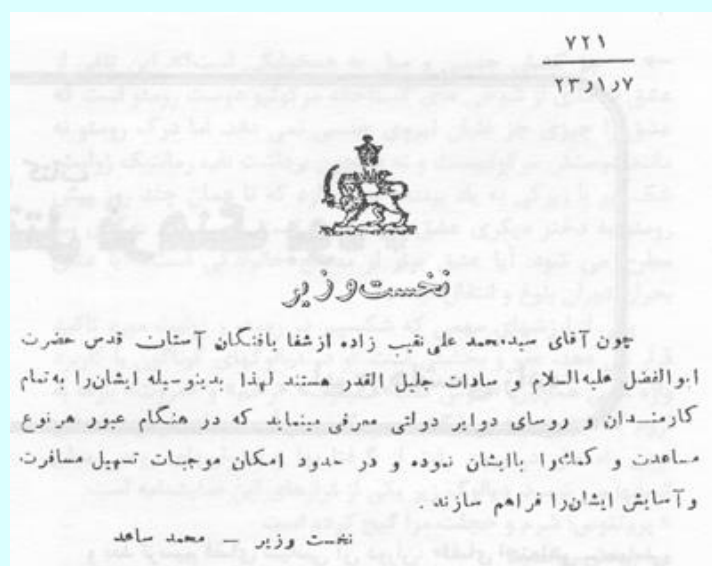 ۷۲۱
۲۳ر۱ر۷
نخست‌وزیر
چون آقای سیدمحمد علی نقیب زاده ازشفا یافتگان آستان قدس حضرت
ابوالفضل علیه‌السلام و سادات جلیل القدر هستند لهذا بدینوسیله ایشان‌را به‌تمام
کارمندان و روسای دوایر دولتی معرفی مینماید که در هنگام عبور هرنوع
مساعدت و کمك‌را باایشان نموده و در حدود امکان موجبات تسهیل مسافرت
وآسایش ایشان‌را فراهم سازند .
نخست وزیر — محمد ساعد